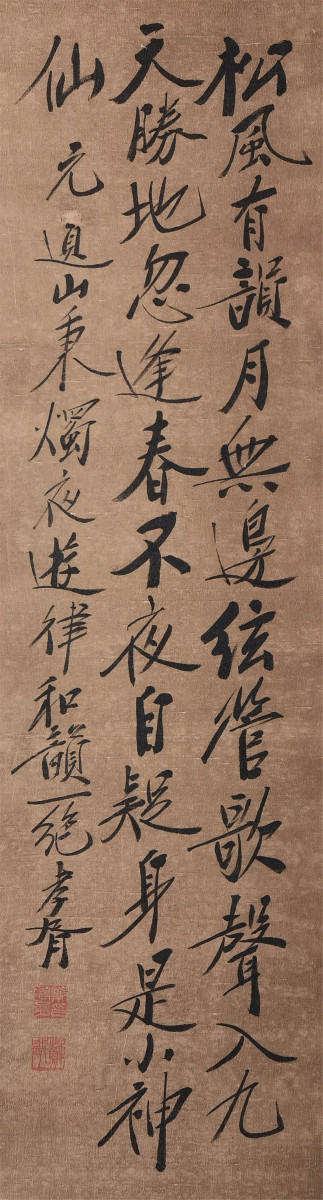 松風有韻月無邊弦管歌聲入九
天勝地忽逢春不夜自疑身是小神
仙 元道山秉燭夜遊律和韻一絕 孝胥